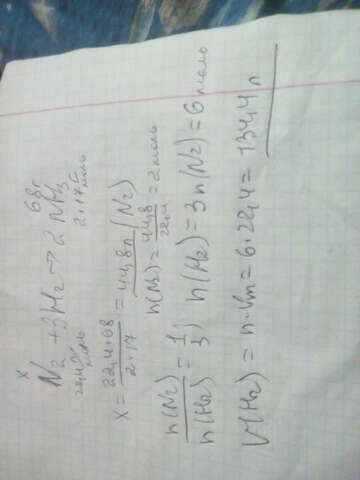 x 68г
N₂ + 3H₂ → 2NH₃
22,4 л/моль 2·17 г/моль
x = 22,4·68 / 2·17 = 44,8 л (N₂)
n(N₂) = 44,8 / 22,4 = 2 моль
n(N₂) / n(H₂) = 1/3; n(H₂) = 3n(N₂) = 6 моль
V(H₂) = n·Vm = 6·22,4 = 134,4 л